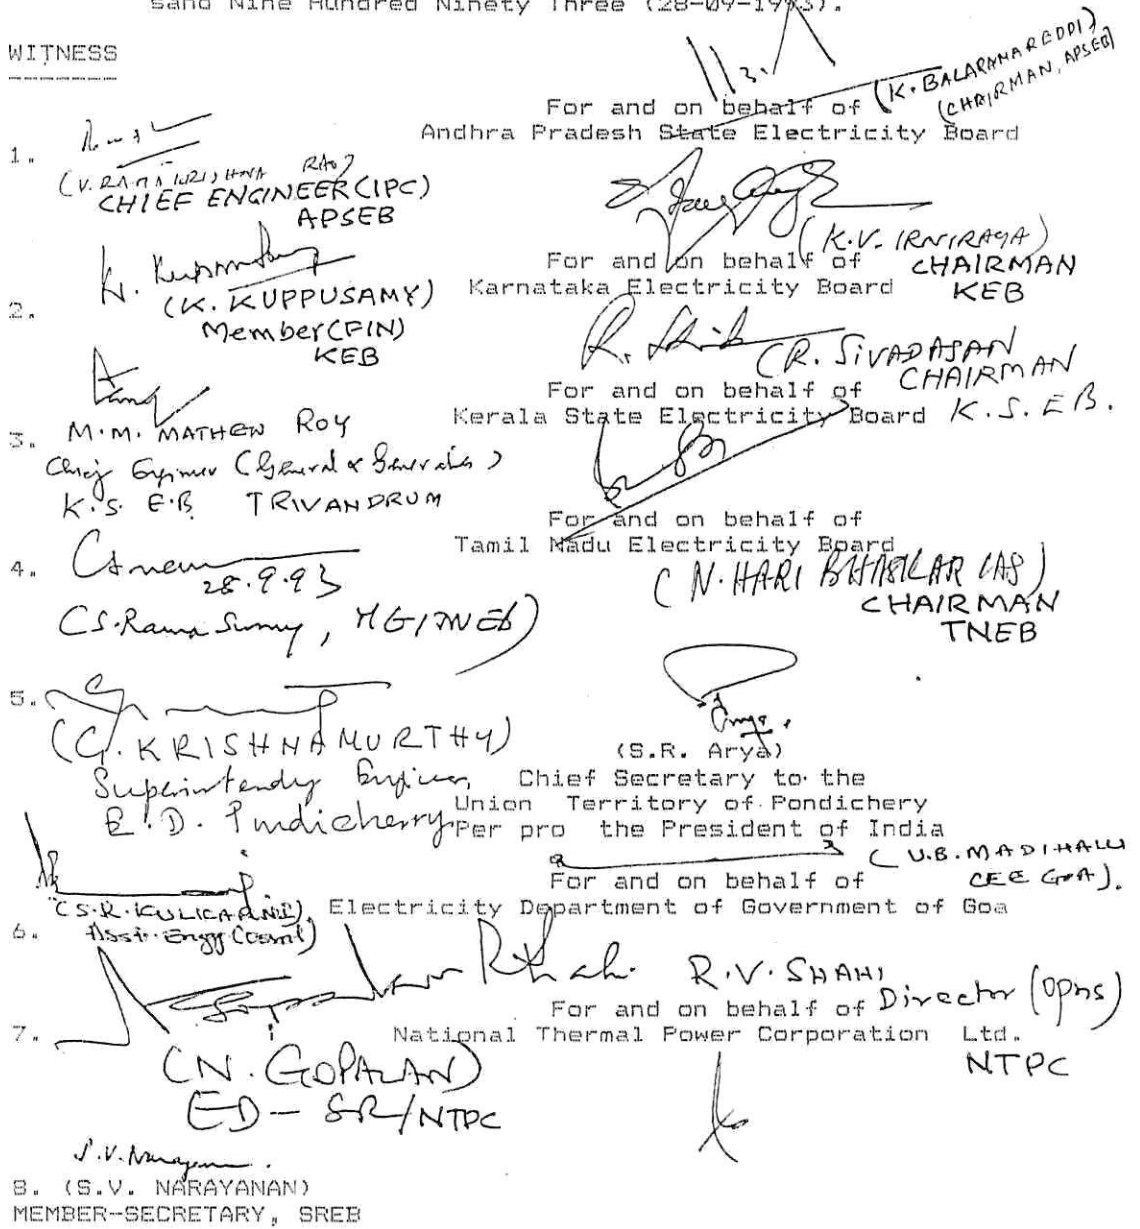 sand Nine Hundred Ninety Three (28-09-1993).
WITNESS
(K. BALARAMA REDDI)
(CHAIRMAN, APSEB)
For and on behalf of
Andhra Pradesh State Electricity Board
1.
(V. RAMAKRISHNA RAO)
CHIEF ENGINEER (IPC)
APSEB
(K.V. IRNIRAYA)
For and on behalf of CHAIRMAN
Karnataka Electricity Board KEB
2.
K. Kuppusamy
(K. KUPPUSAMY)
Member (FIN)
KEB
(R. SIVADASAN
CHAIRMAN
For and on behalf of
Kerala State Electricity Board K.S.E.B.
3.
M.M. MATHEW ROY
Chief Engineer (General & Generation)
K.S.E.B. TRIVANDRUM
For and on behalf of
Tamil Nadu Electricity Board
(N. HARI BHASKAR IAS)
CHAIRMAN
TNEB
4.
28.9.93
5.
(G. KRISHNAMURTHY)
Superintendg Engineer,
E.D. Pondicherry
Arya.
(S.R. Arya)
Chief Secretary to the
Union Territory of Pondichery
Per pro the President of India
(U.B. MADIHALLI
CEE GOA).
For and on behalf of
Electricity Department of Government of Goa
6.
(S.R. KULKARNI),
Asst. Engg (Coml)
R.V. SHAHI
Director (Opns)
For and on behalf of
National Thermal Power Corporation Ltd.
NTPC
7.
(N. GOPALAN)
ED - SR/NTPC
S.V. Narayanan.
8. (S.V. NARAYANAN)
MEMBER-SECRETARY, SREB